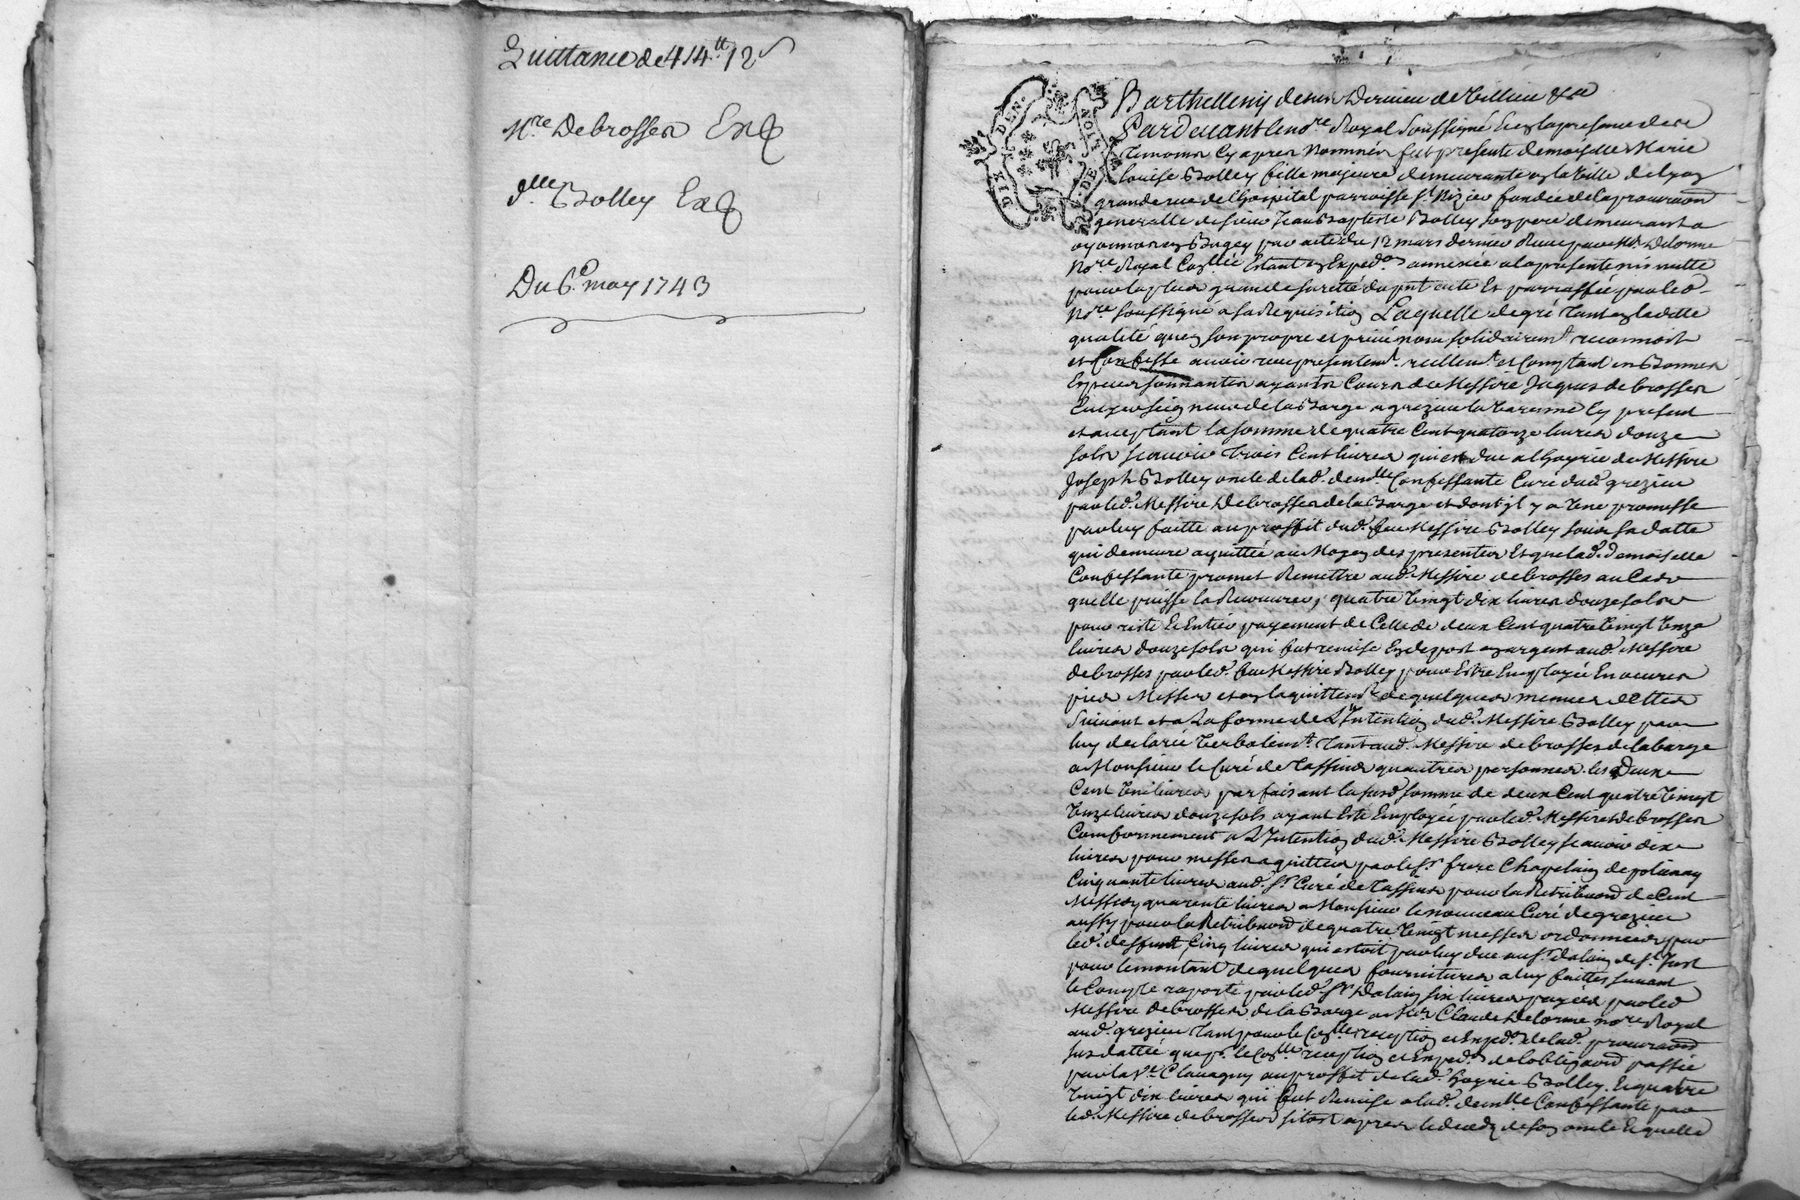 Quittance de 414ᵗᵗ 12ˢ
Mʳᵉ Debrosses Exp
Dˡˡᵉ Bolley Exp
Du 6ᵉ may 1743
DIX DEN.
DE
Barthellemy
Pardevant le noʳᵉ Royal soussigné et en la presence de
temoins cy apres nommés fut presente demoiselle Marie
Louise Bolley fille majeure demeurante en la ville de Lyon
grande rue de l'hospital parroisse Sᵗ Nizier fondée de la procuraõn
generalle de sieur Jean Baptiste Bolley son pere demeurant a
oyonnax en Bugey par acte du 12 mars dernier Receu par Mᵉ Delorme
Noʳᵉ Royal estant en Exped.ᵒⁿ annexée a la presente minutte
pour la plus grande sureté du pnt acte et parraffée par led.
Noʳᵉ soussigné a sa Requisition Laquelle de gré tant en laditte
qualité qu'en son propre et privé nom solidairemᵗ reconnoit
et Confesse avoir receu presentemᵗ reellemᵗ et Comptant en Bonnes
Especes sonnantes ayants Cours de Messire Jaques de brosses
Ecuyer seigneur de la Barge a grezieu la varenne Cy present
et acceptant la somme de quatre Cent quatorze livres douze
sols scavoir trois Cent livres qui est due a l'hoyrie de Messire
Joseph Bolley oncle de lad. demˡˡᵉ Confessante Curé dud. grezieu
par led. Messire Debrosses de la Barge et dont il y a une promesse
par luy faitte au proffit dud. feu Messire Bolley sous sa datte
qui demeure aquittée au Moyen des presentes Et que lad. Demoiselle
Confessante promet Remettre aud. Messire de brosses au Cas
quelle puisse la Recouvrer, quatre vingt dix livres douze sols
pour reste et Entier payement de Celle de deux Cent quatre vingt onze
livres douze sols qui fut remise En depost en argent aud. Messire
de brosses par led. feu Messire Bolley pour Estre Employée En oeuvres
pies Messes et en l'aquittemᵗ de quelques menues dettes
Suivant et a la forme de L'Intention dud. Messire Bolley par
luy declarée verbalemᵗ tant aud. Messire de brosses de la barge
a Monsieur le Curé de Tassins qu'autres personnes les Deux
Cent une livres parfaisant la susd. somme de deux Cent quatre vingt
onze livres douze sols ayant Esté Employée par led. Messire de brosses
Conformement a L'Intention dud. Messire Bolley scavoir dix
livres pour messes aquittées par le Sʳ frere Chapelain de polinay
Cinquante livres aud. Sʳ Curé de Tassins pour la Retribuaõn de Cent
Messes, quarente livres a Monsieur le nouveau Curé de grezieu
aussy pour la Retribuaõn de quatre vingt messes ordonnées par
led. deffunt, Cinq livres qui estoit par luy due au Sʳ Dalain de Sᵗ Just
pour le montant de quelques fournitures a luy faittes suivant
le Compte raporté par led. Sʳ Dalain, six livres payées par led.
Messire de brosses de la Barge a Mᵉ Claude Delorme noʳᵉ Royal
aud. grezieu tant pour le reception et Exped.ᵒⁿ de lad. procuraõn
susdattée que pʳ le reception et Exped.ᵒⁿ de l'obligaõn passée
par la Vᵉ Clavagny au proffit de lad. hoyrie Bolley, Et quatre
vingt dix livres qui fut Remise a lad. demˡˡᵉ Confessante par
led. Messire de brosses sitost apres le deceds de son oncle Et quelle